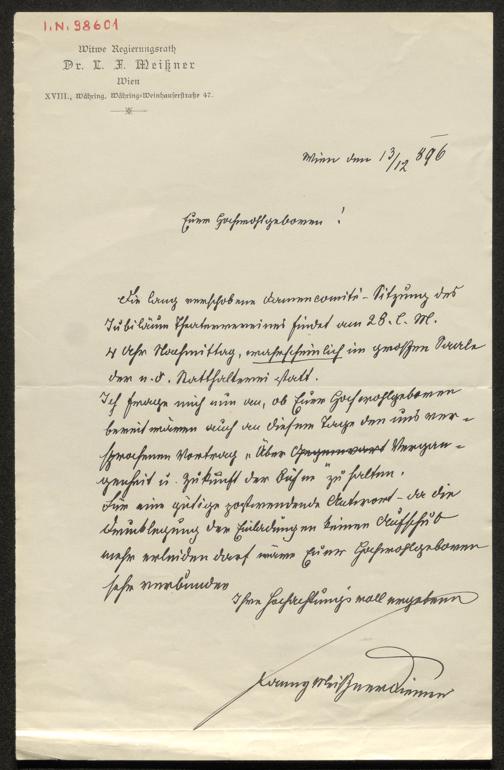 I.N. 98601
Witwe Regierungsrath
Dr. L. F. Meißner
Wien
XVIII., Währing, Währing-Weinhauserstraße 47.
Wien den 13/12 896
Euer Hochwohlgeboren!
Die lang verschobene Damencomité-Sitzung des
Jubiläums Theatervereines findet am 28. l. M.
4 Uhr Nachmittag, wahrscheinlich im großen Saale
der n. ö. Statthalterei statt.
Ich frage mich nun an, ob Euer Hochwohlgeboren
bereit wären auch an diesem Tage den uns ver-
sprochenen Vortrag „Über Gegenwart Vergan-
genheit u. Zukunft der Bühne" zu halten.
Für eine gütige postwendende Antwort – da die
Drucklegung der Einladungen keinen Aufschub
mehr erleiden darf wäre Euer Hochwohlgeboren
sehr verbunden
Ihre hochachtungsvoll ergebene
Fanny Meißner Diemer